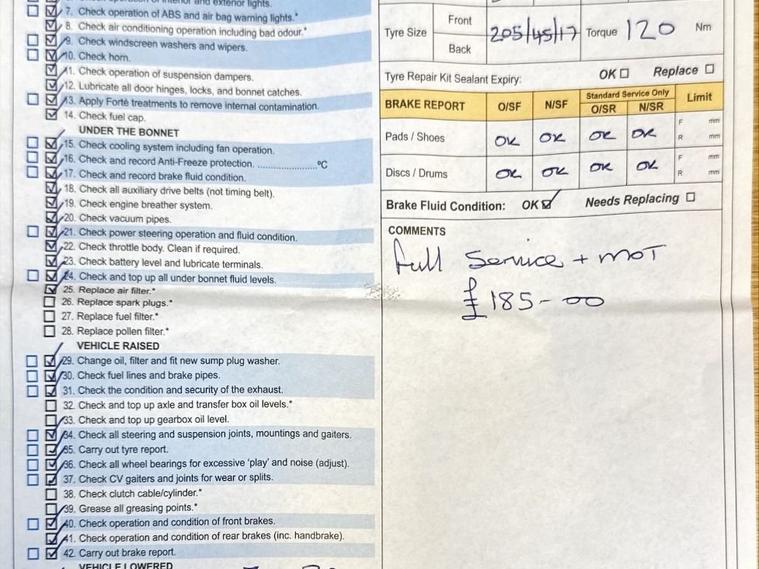 7. Check operation of ABS and air bag warning lights.*
8. Check air conditioning operation including bad odour.*
9. Check windscreen washers and wipers.
10. Check horn.
11. Check operation of suspension dampers.
12. Lubricate all door hinges, locks, and bonnet catches.
13. Apply Forté treatments to remove internal contamination.
14. Check fuel cap.
UNDER THE BONNET
15. Check cooling system including fan operation.
16. Check and record Anti-Freeze protection. ......................°C
17. Check and record brake fluid condition.
18. Check all auxiliary drive belts (not timing belt).
19. Check engine breather system.
20. Check vacuum pipes.
21. Check power steering operation and fluid condition.
22. Check throttle body. Clean if required.
23. Check battery level and lubricate terminals.
24. Check and top up all under bonnet fluid levels.
25. Replace air filter.*
26. Replace spark plugs.*
27. Replace fuel filter.*
28. Replace pollen filter.*
VEHICLE RAISED
29. Change oil, filter and fit new sump plug washer.
30. Check fuel lines and brake pipes.
31. Check the condition and security of the exhaust.
32. Check and top up axle and transfer box oil levels.*
33. Check and top up gearbox oil level.
34. Check all steering and suspension joints, mountings and gaiters.
35. Carry out tyre report.
36. Check all wheel bearings for excessive 'play' and noise (adjust).
37. Check CV gaiters and joints for wear or splits.
38. Check clutch cable/cylinder.*
39. Grease all greasing points.*
40. Check operation and condition of front brakes.
41. Check operation and condition of rear brakes (inc. handbrake).
42. Carry out brake report.
VEHICLE LOWERED
Tyre Size Front 205/45/17 Torque 120 Nm
Back
Tyre Repair Kit Sealant Expiry: OK Replace
BRAKE REPORT O/SF N/SF Standard Service Only Limit
O/SR N/SR
Pads / Shoes OK OK OK OK F mm
R mm
Discs / Drums OK OK OK OK F mm
R mm
Brake Fluid Condition: OK Needs Replacing
COMMENTS
full Service + MOT
£185-00